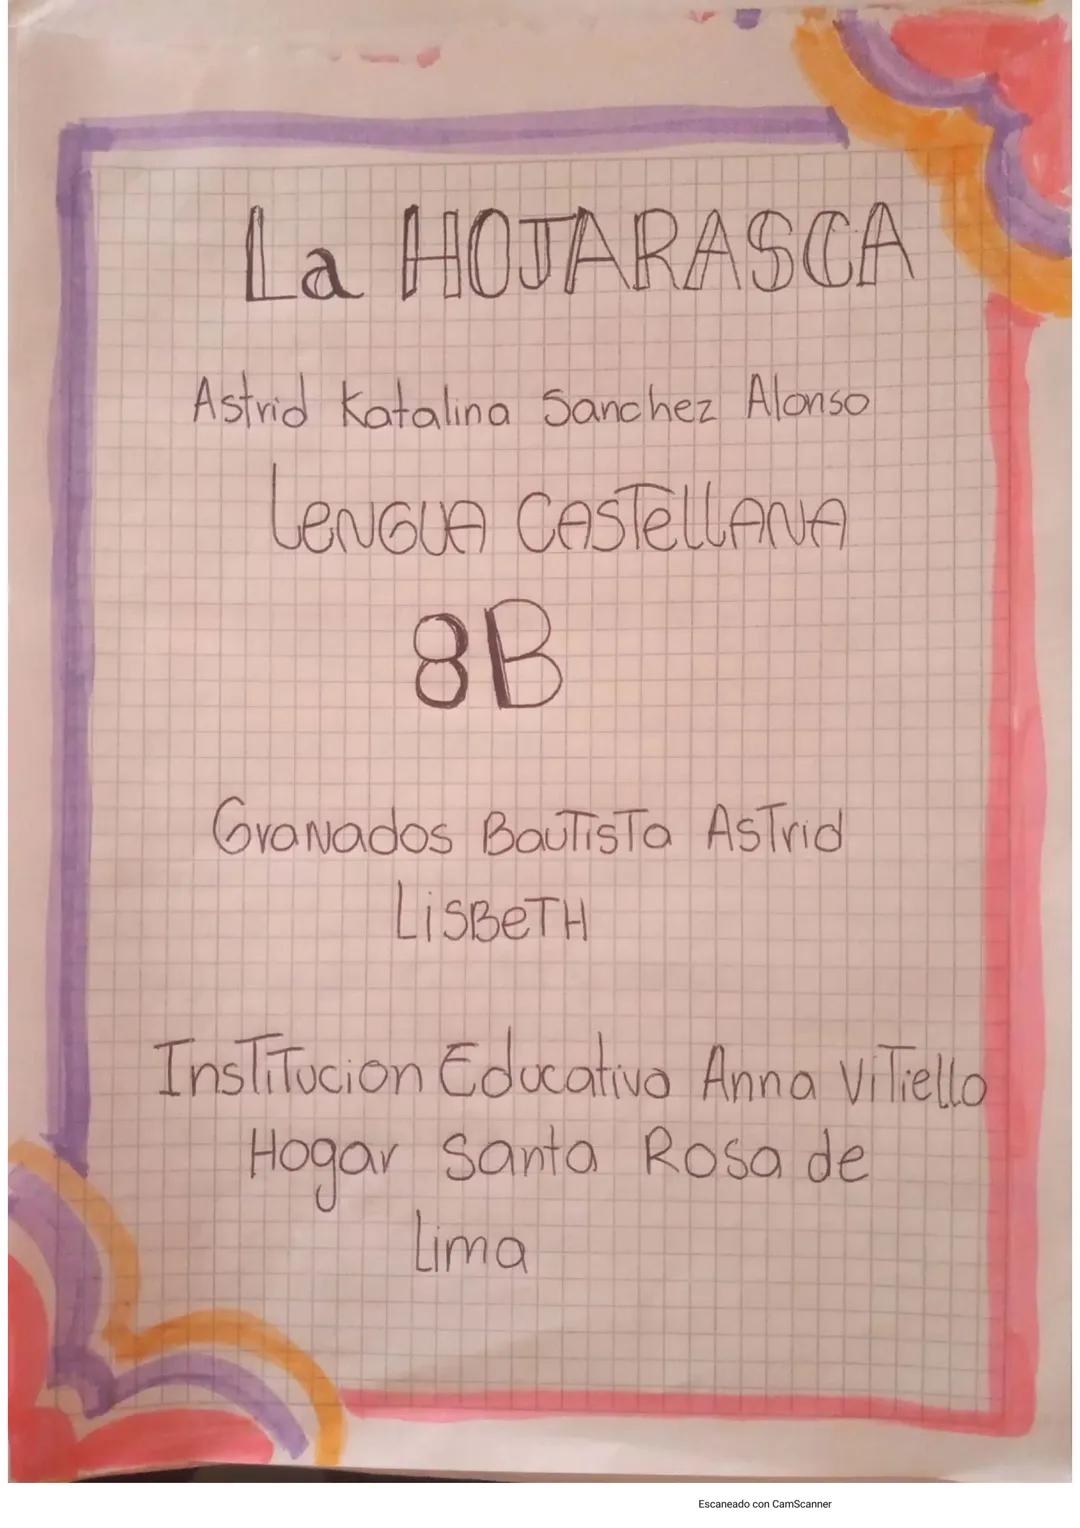 La HOJARASCA
Astrid Katalina Sanchez Alonso
LENGUA CASTELLANA
8B
Granados Bautista Astrid
LISBETH
Institucion Educativa Anna Vitiello
Hogar Santa Rosa de
Lima
Escaneado con CamScanner